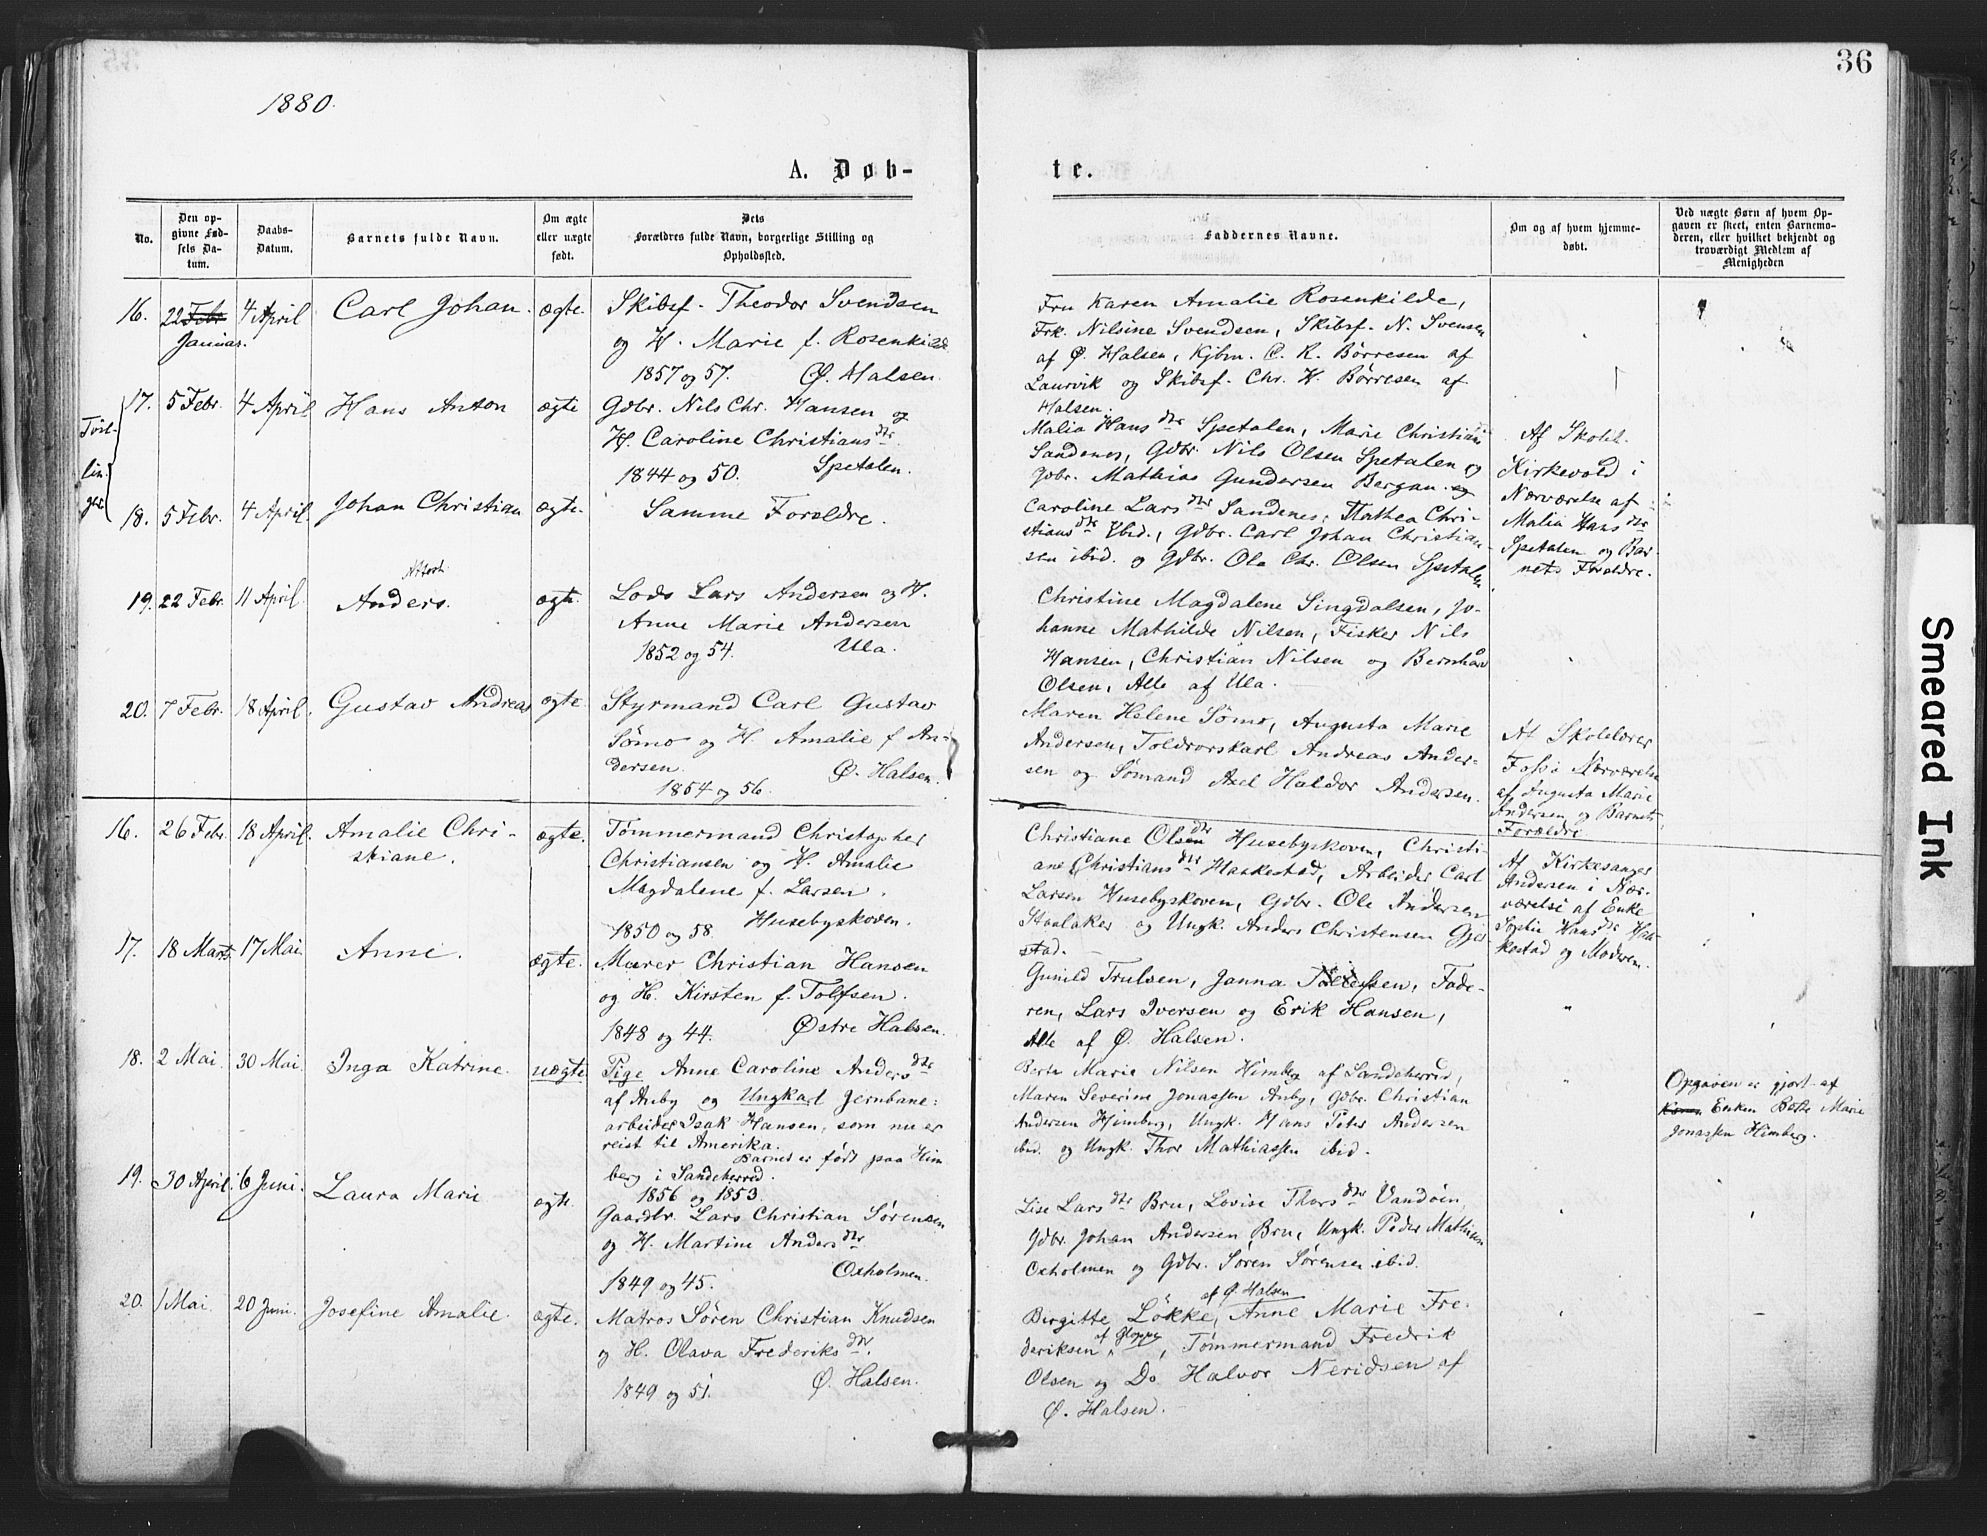 36
1880.
A. Døb-
te.
No.
Den op-
givne Fød-
sels Da-
tum.
Daabs-
Datum.
Barnets fulde Navn.
Om ægte
eller uægte
født.
Dets
Forældres fulde Navn, borgerlige Stilling og
Opholdssted.
Faddernes Navne.
Om og af hvem hjemme-
døbt.
Ved uægte Børn af hvem Op-
gaven er skeet, enten Barnemo-
deren, eller hvilket bekjendt og
troværdigt Medlem af
Menigheden
16. 22 Febr 4 April Carl Johan. ægte.
Januar.
Skibsf. Theodor Svendsen
og H. Marie f. Rosenkilde
1857 og 57. Ø. Halsen.
Fru Karen Amalie Rosenkilde,
Frk. Nilsine Svendsen, Skibsf. N. Svensen
af Ø. Halsen, Kjbm. C. R. Børresen af
Laurvik og Skibsf. Chr. H. Børresen af
Halsen.
Tvil-
lin-
ger
17. 5 Febr. 4 April Hans Anton ægte
Gdbr. Nils Chr. Hansen og
H. Caroline Christiansdtr.
1844 og 50. Spetalen.
Malia Hansdtr Spetalen, Marie Christians
Sandenes, Gdbr. Nils Olsen Spetalen og
Gdbr. Mathias Gundersen Bergan. og
18. 5 Febr. 4 April Johan Christian ægte.
Samme Forældre.
Caroline Larsdtr Sandenes, Mathea Chri-
stiansdtr Ibid., Gdbr. Carl Johan Christian-
sen ibid. og Gdbr. Ole Chr. Olsen Spetalen
Af Skoll.
Kirkevold i
Nærværelse af
Malia Hansdtr
Spetalen og Bar-
nets Forældre.
19. 22 Febr. 11 April Anders. ægte.
Lods Lars Andersen og H.
Anne Marie Andersen
1852 og 54. Ula.
Christine Magdalene Singdalsen, Jo-
hanne Mathilde Nilsen, Fisker Nils
Hansen, Christian Nilsen og Bernhard
Olsen, Alle af Ula.
20. 7 Febr. 18 April. Gustav Andreas ægte
Styrmand Carl Gustav
Sømo og H. Amalie f. An-
dersen. Ø. Halsen.
1854 og 56.
Maren Helene Sømo, Augusta Marie
Andersen, Toldrorskarl Andreas Ander-
sen og Sømand Axel Haldor Andersen.
Af Skolelærer
Fossø Nærværelse
af Augusta Marie
Andersen og Barnets
Forældre
16. 26 Febr. 18 April. Amalie Chri- ægte.
skiane.
Tømmermand Christopher
Christiansen og H. Amalie
Magdalene f. Larsen.
1850 og 58. Husebyskoven.
Christiane Olsendtr Husebyskoven, Christi-
ane Christiansdtr Haakestad, Arbeider Carl
Larsen Husebyskoven, Gdbr. Ole Andersen
Staalaker og Ungk. Anders Christensen Gjer-
stad.
Af Kirkesanger
Andersen i Nær-
værelse af Enke
Sophie Hansdtr Haa-
kestad og Moderen.
17. 18 Marts. 17 Mai. Anne. ægte.
Murer Christian Hansen
og H. Kirsten f. Tolfsen.
1848 og 44. Østre Halsen.
Gunild Trulsen, Janna Tollefsen, Fade-
ren, Lars Iversen og Erik Hansen,
Alle af Ø. Halsen.
18. 2 Mai 30 Mai Inga Katrine. uægte
Pige Anne Caroline Andersdtr
af Anby og Ungkarl Jernbane-
arbeider Isak Hansen, som nu er
reist til Amerika.
Barnet er født paa Him
berg i Sandeherred.
1856 og 1853.
Berte Marie Nilsen Himberg af Sandeherred,
Maren Severine Jonassen Anby, Gdbr. Christian
Andersen Himberg, Ungk. Hans Peter Andersen
ibid. og Ungk. Thor Mathiassen ibid.
Opgaven er gjort af
Enken Berte Marie
Jonassen Himberg.
19. 30 April. 6 Juni. Laura Marie ægte.
Gaardbr. Lars Christian Sørensen
og H. Martine Andersdtr
1849 og 45. Oxholmen.
Lise Larsdtr Bru, Lovise Thorsdtr Vandøen,
Gdbr. Johan Andersen Bru, Ungk. Peder Mathisen
Oxholmen og Gdbr. Søren Sørensen ibid.
20. 1 Mai. 20 Juni. Josefine Amalie. ægte.
Matros Søren Christian Knudsen
og H. Olava Frederiksdtr.
1849 og 51. Ø. Halsen.
af Ø. Halsen
Birgitte Løkke, Anne Marie Fre-
deriksen af Gloppe, Tømmermand Fredrik
Olsen og Do. Halvor Neridsen af
Ø. Halsen.
Smeared Ink